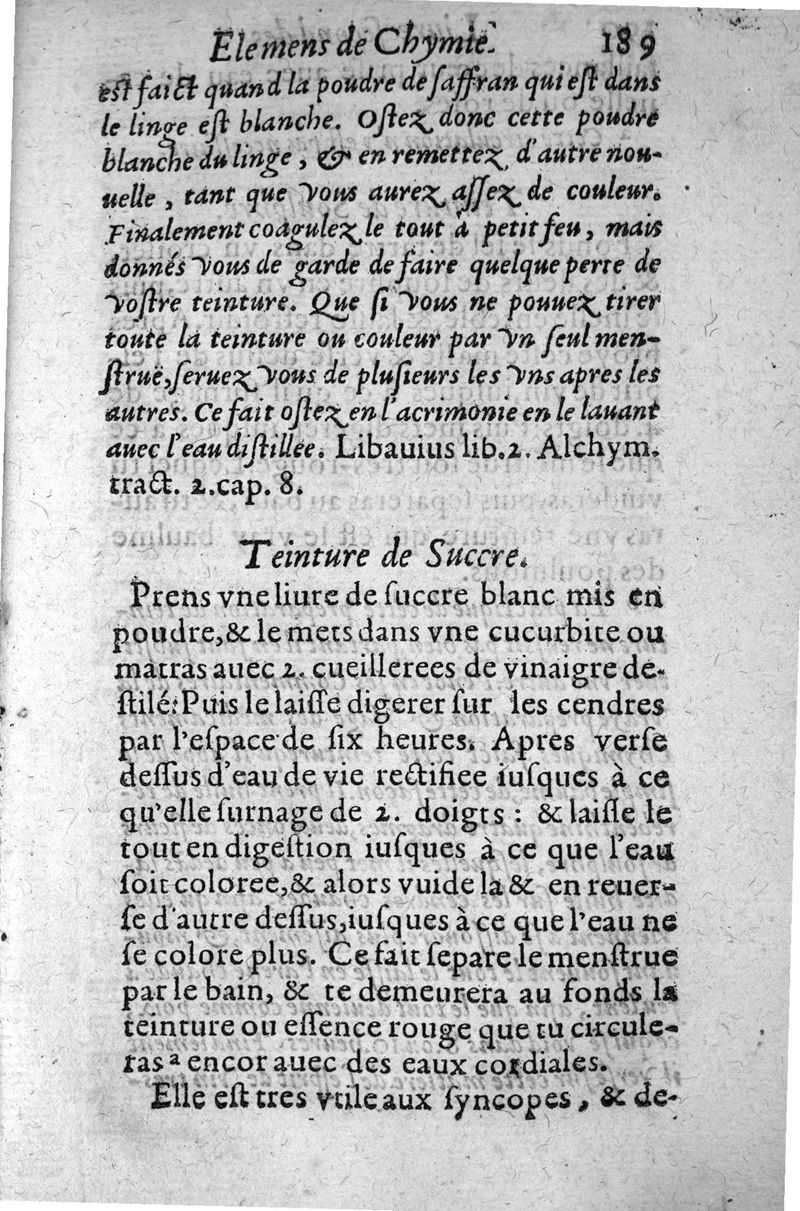 Elemens de Chymie. 189
est faict quand la poudre de saffran qui est dans
le linge est blanche. Ostez donc cette poudre
blanche du linge, & en remettez d'autre nou-
uelle, tant que vous aurez assez de couleur.
Finalement coagulez le tout à petit feu, mais
donnés vous de garde de faire quelque perte de
vostre teinture. Que si vous ne pouuez tirer
toute la teinture ou couleur par vn seul men-
struë, seruez vous de plusieurs les vns apres les
autres. Ce fait ostez en l'acrimonie en le lauant
auec l'eau distillée. Libauius lib. 2. Alchym.
tract. 2. cap. 8.
Teinture de Succre.
Prens vne liure de succre blanc mis en
poudre, & le mets dans vne cucurbite ou
matras auec 2. cueillerees de vinaigre de-
stilé: Puis le laisse digerer sur les cendres
par l'espace de six heures. Apres verse
dessus d'eau de vie rectifiee iusques à ce
qu'elle surnage de 2. doigts : & laisse le
tout en digestion iusques à ce que l'eau
soit coloree, & alors vuide la & en reuer-
se d'autre dessus, iusques à ce que l'eau ne
se colore plus. Ce fait separe le menstrue
par le bain, & te demeurera au fonds la
teinture ou essence rouge que tu circule-
ras a encor auec des eaux cordiales.
Elle est tres vtile aux syncopes, & de-